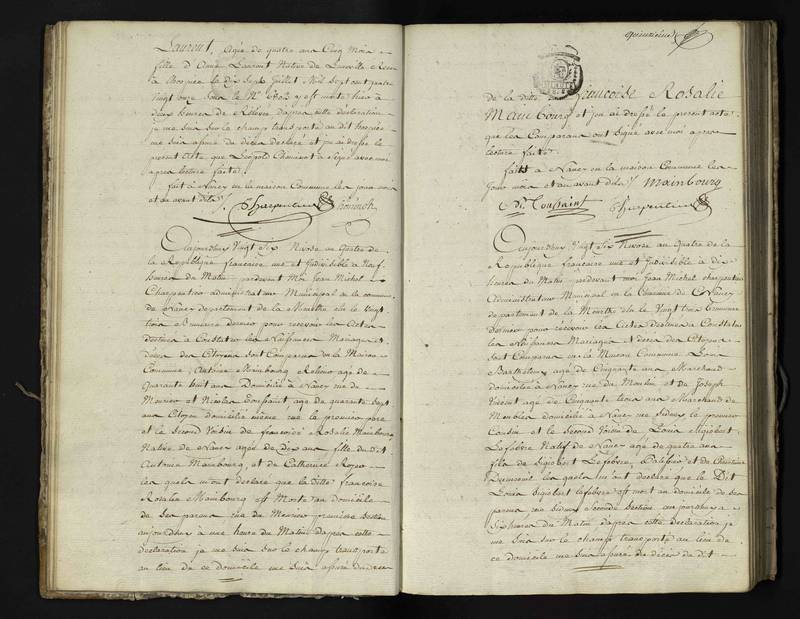 Laurent, agée de quatre ans Cinq Mois
fille d'anne Laurent Native de Luneville
à
vingt onze sous le N.º est morte hier à
deux heures de Relevé d'après cette déclaration
je me suis sur le champ transporté au dit hospice
me suis assuré du décès déclaré et j'ai dressé le
présent acte, que Léopold a signé avec moi
après lecture faite.
fait à Nancy en la maison Commune les jour mois
et an avant dits.
Charpentier
Aujourdhuy Vingt Six Nivose an Quatre de
la République française une et Indivisible à Neuf
heures du Matin pardevant Moi Jean Michel
Charpentier administrateur Municipal de la commune
de Nancy departement de la Meurthe élu le vingt
trois Brumaire dernier pour recevoir les Actes
destinés à Constater les Naissances Mariages et
décès des Citoyens Sont Comparus en la Maison
Commune, Antoine Mainbourg Relieur agé de
Quarante huit ans Domicilié à Nancy rue de
et Nicolas Toussaint agé de quarante Sept
ans Citoyen domicilié même rue le premier père
et le Second Voisin de françoise Rosalie Mainbourg
Native de Nancy agée de Dix ans fille du dit
Antoine Mainbourg, et de Catherine
les quels m'ont déclaré que la ditte françoise
Rosalie Mainbourg est Morte au domicile
de ses parens rue du première Section
aujourdhuy à une heure du Matin d'après cette
déclaration je me suis sur le champ transporté
au lieu de ce domicile me suis assuré du decès
quinzième
de la ditte françoise Rosalie
Mainbourg et j'en ai dressé le présent acte
que les Comparans ont Signé avec moi après
lecture faite.
fait à Nancy en la maison Commune les
jour mois et an avant dits. Mainbourg
N. Toussaint Charpentier
Aujourdhuy Vingt Six Nivose an Quatre de la
République française une et Indivisible à dix
heures du Matin pardevant moi Jean Michel charpentier
administrateur Municipal de la Commune de Nancy
departement de la Meurthe élu le Vingt trois Brumaire
dernier pour recevoir les Actes destinés à Constater
les Naissances Mariages et décès des Citoyens
Sont Comparus en la Maison Commune Louis
Barthelemy agé de Cinquante ans Marchand
domicilié à Nancy rue du Moulin et de Joseph
Vincent agé de Cinquante trois ans Marchand de
Meubles domicilié à Nancy rue le premier
Cousin et le Second Voisin de Louis Sigisbert
Lefebvre Natif de Nancy agé de quatre ans
fils de Sigisbert Lefebvre, et de Christine
les quels m'ont déclaré que le Dit
Louis Sigisbert Lefebvre est mort au domicile de ses
parens rue Seconde Section aujourdhuy à
Six heures du Matin d'après cette déclaration je
me suis sur le champ transporté au lieu de
ce domicile me suis assuré du décès du dit